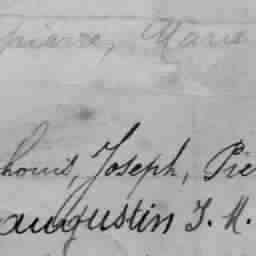 pierre, Marie
Joseph, Pie
augustin J. M.